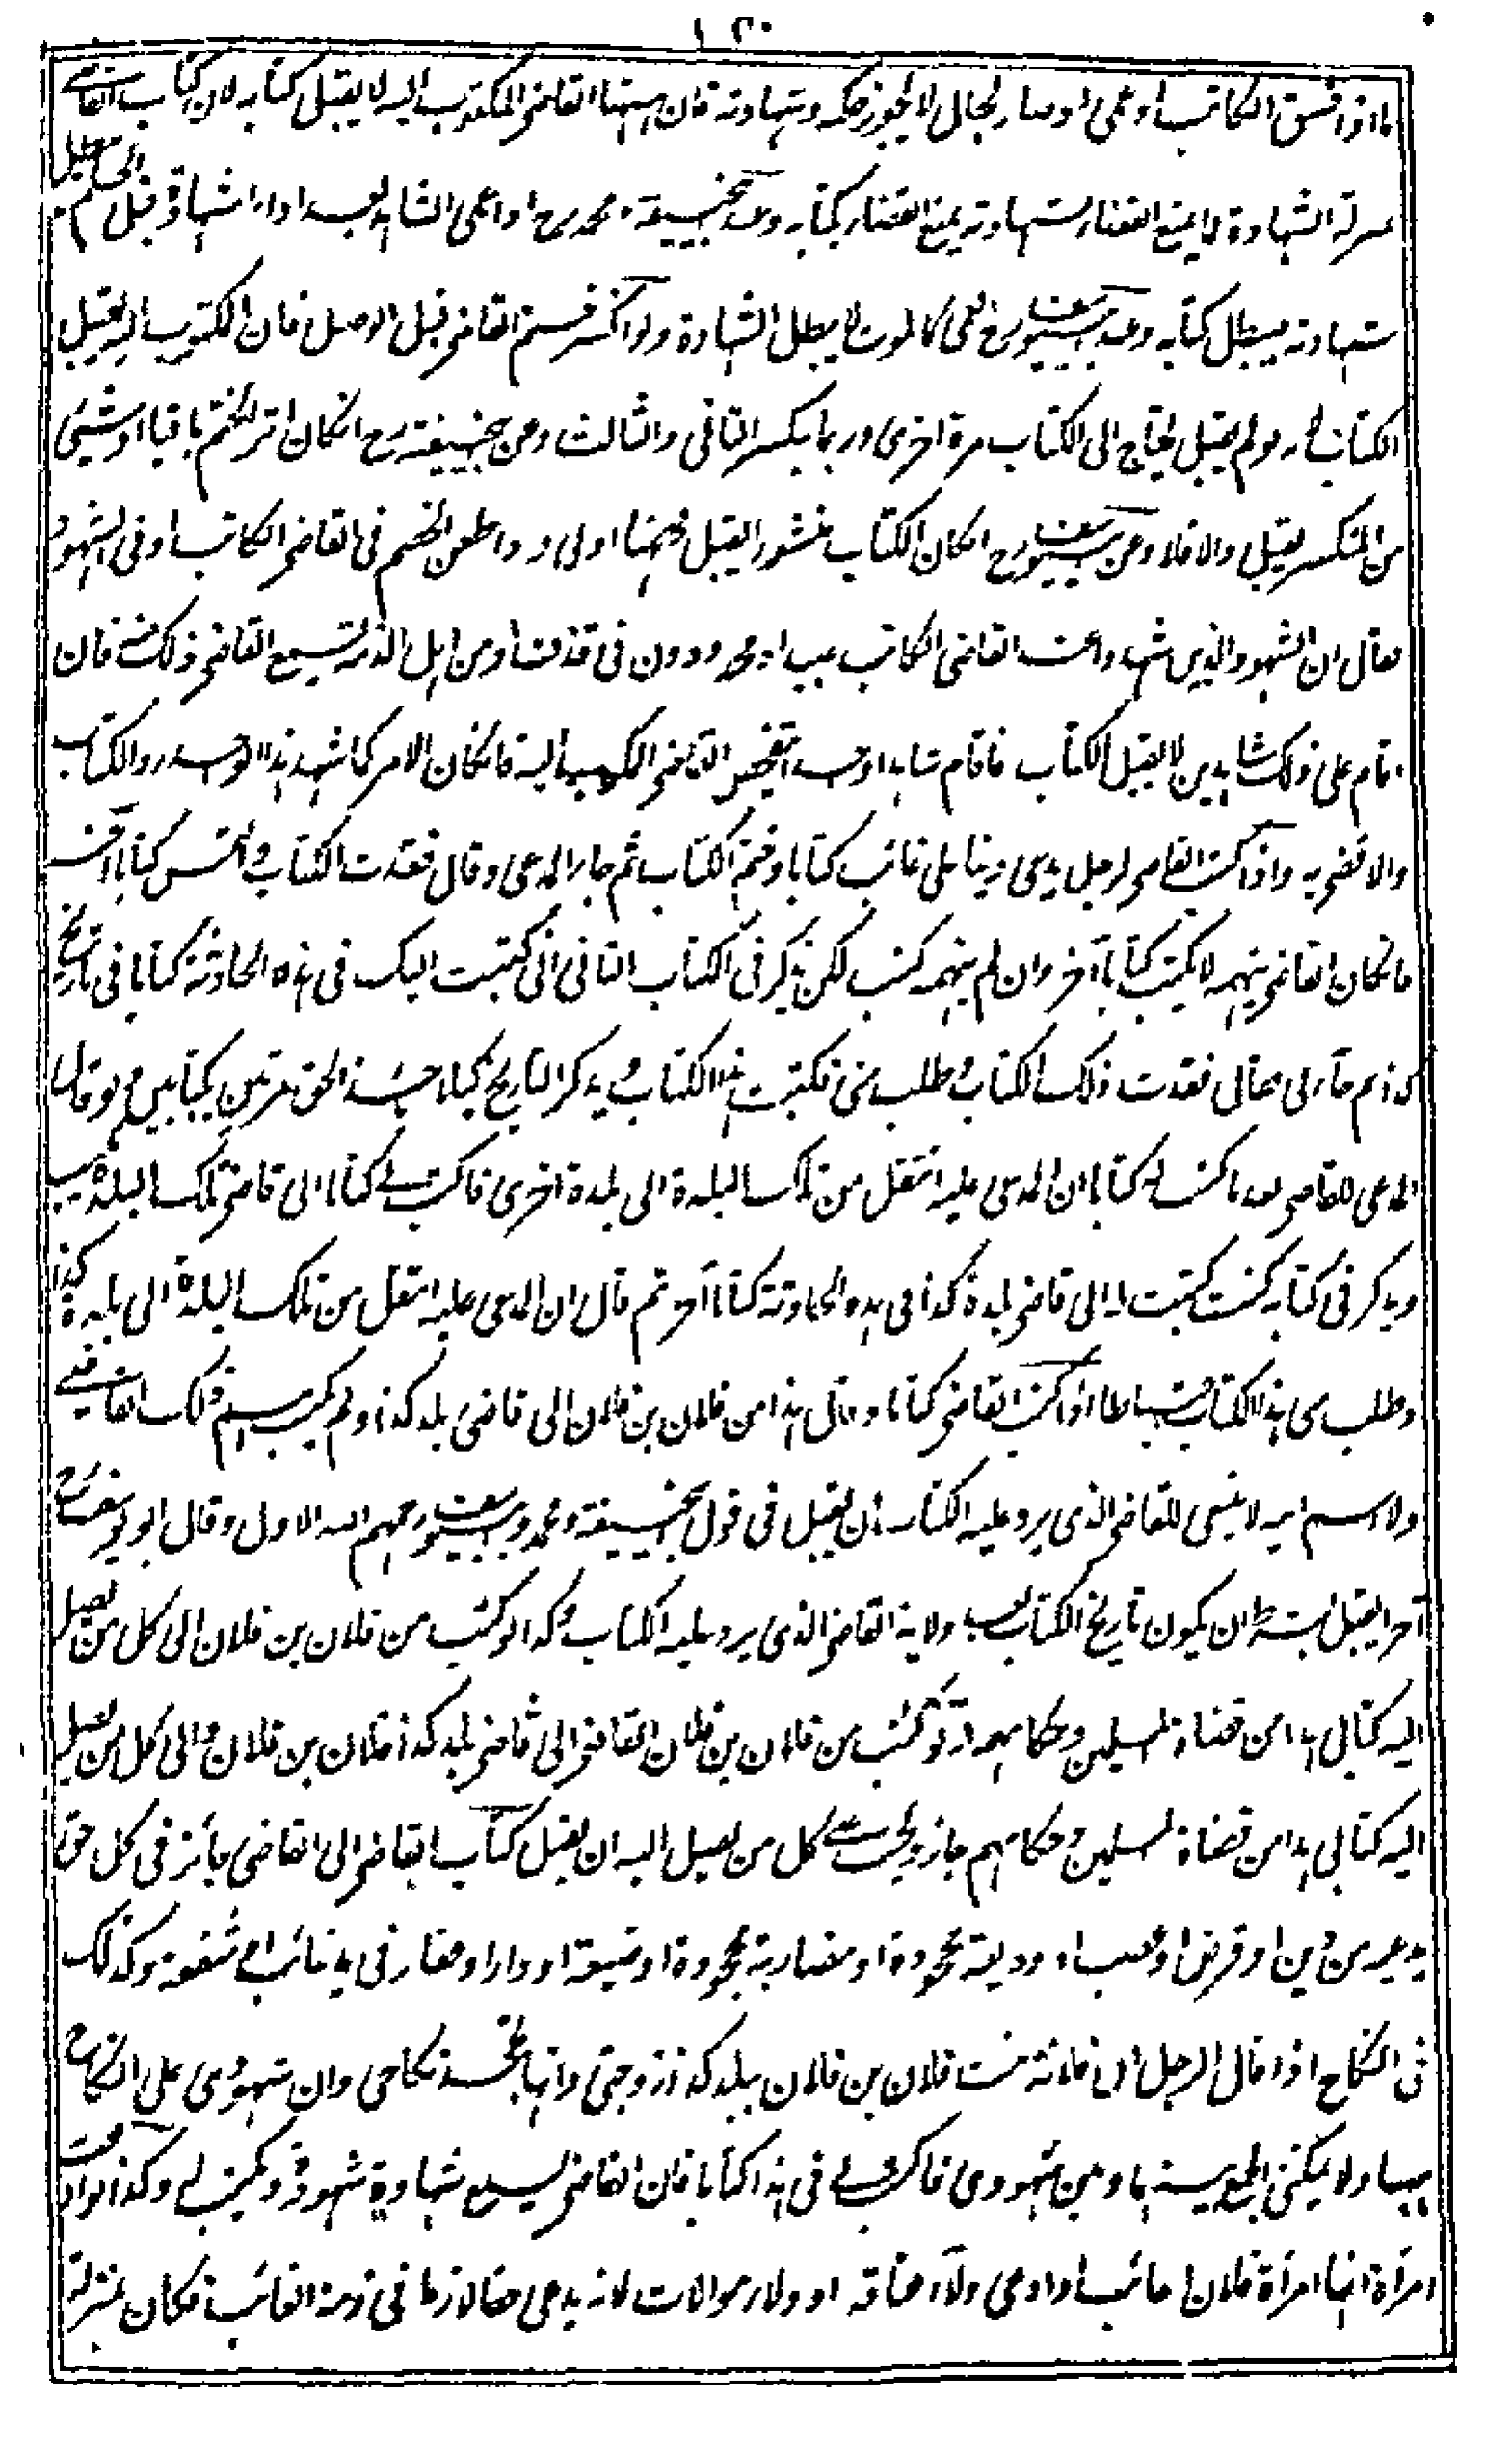 ١٣٠
اما اذا فسق الكاتب او عمى او صار بحال لا يجوز حكمه وشهادته فان القاضى المكتوب اليه لا يقبل كتابه لان كتاب القاضى
بمنزلة الشهادة فما يمنع القضاء بشهادته يمنع القضاء بكتابه وعند ابيحنيفة ومحمد رح اذا عمى الشاهد بعد اداء الشهادة قبل الحكم تبطل
شهادته فيبطل كتابه وعند ابييوسف رح العمى كالموت لا يبطل الشهادة ولو انكسر ختم القاضى قبل الوصل فان المكتوب اليه يقبل
الكتاب ولو لم يقبل يحتاج الى الكتاب مرة اخرى وربما يكسر الثانى والثالث وعن ابيحنيفة رح انكان اثر الختم باقيا او شىء
من المنكسر يقبل والا فلا وعن ابييوسف رح انكان الكتاب منشورا يقبل فههنا اولى واذا طعن الخصم فى القاضى الكاتب او فى الشهود
فقال ان الشهود الذين شهدوا عند القاضى الكاتب عبيد او محدودون فى قذف او من اهل الذمة يسمع القاضى ذلك منه فان
اقام على ذلك شاهدين لا يقبل الكتاب فاقام شاهدا واحدا القاضى المكتوب اليه فانكان الامر كما شهد هذا الواحد رد الكتاب
والا قضى به واذا كتب القاضى لرجل يدعى دينا على غائب كتابا وختم الكتاب ثم جاء المدعى وقال فقدت الكتاب والتمس كتابا آخر
فانكان القاضى يتهمه لا يكتب كتابا آخر وان لم يتهمه كتب لكن يذكر فى الكتاب الثانى انى كتبت اليك فى هذه الحادثة كتابا فى تاريخ
كذا ثم جاءنى فقال فقدت ذلك الكتاب وطلب منى فكتبت هذا الكتاب ويذكر التاريخ كيلا ياخذ الحق مرتين بكتابين ولو قال
المدعى للقاضى بعد ما كتب له كتابا ان المدعى عليه انتقل من تلك البلدة الى بلدة اخرى فاكتب لى كتابا الى قاضى تلك البلدة يكتب
ويذكر فى كتابه كنت كتبت له الى قاضى بلدة كذا فى هذه الحادثة كتابا آخر ثم قال ان المدعى عليه انتقل من تلك البلدة الى بلدة كذا
وطلب منى هذا الكتاب احتياطا اذا كتب القاضى كتابا وقال هذا من فلان بن فلان الى قاضى بلد كذا ولم يكتب اسم ذلك القاضى
ولا اسم ابيه لا ينبغى للقاضى الذى يرد عليه الكتاب ان يقبل فى قول ابيحنيفة ومحمد وابييوسف رحمهم الله الاول وقال ابو يوسف رح
آخرا يقبل بشرط ان يكون تاريخ الكتاب بعد ولاية القاضى الذى يرد عليه الكتاب وكذا لو كتب من فلان بن فلان الى كل من يصل
اليه كتابى هذا من قضاة المسلمين وحكامهم ولو كتب من فلان بن فلان القاضى الى قاضى بلد كذا فلان بن فلان والى كل من يصل
اليه كتابى هذا من قضاة المسلمين وحكامهم جاز ويجب على كل من يصل اليه ان يقبل كتاب القاضى الى القاضى جائز فى كل حق
يدعيه من دين او قرض او غصب او وديعة مجحودة او مضاربة مجحودة او ضيعة او دار او عقار فى يد غائب او شفعة وكذلك
فى النكاح اذا قال الرجل ان فلانة بنت فلان بن فلان ببلد كذا زوجتى وانها تجحد نكاحى وان شهودى على النكاح
ههنا ولا يمكننى الجمع بينها وبين شهودى فاكتب لى فى هذا كتابا فان القاضى يسمع شهادة شهوده ويكتب له وكذا لو ادعت
امرأة انها امرأة فلان الغائب او ادعى ولاء عتاقة او ولاء موالات لانه يدعى حقا لازما فى ذمة الغائب فكان بمنزلة